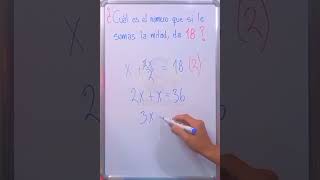 ¿Cuál es el número que si le
sumas la mitad, da 18?
x + 2x/2 = 18 (2)
2x + x = 36
3x